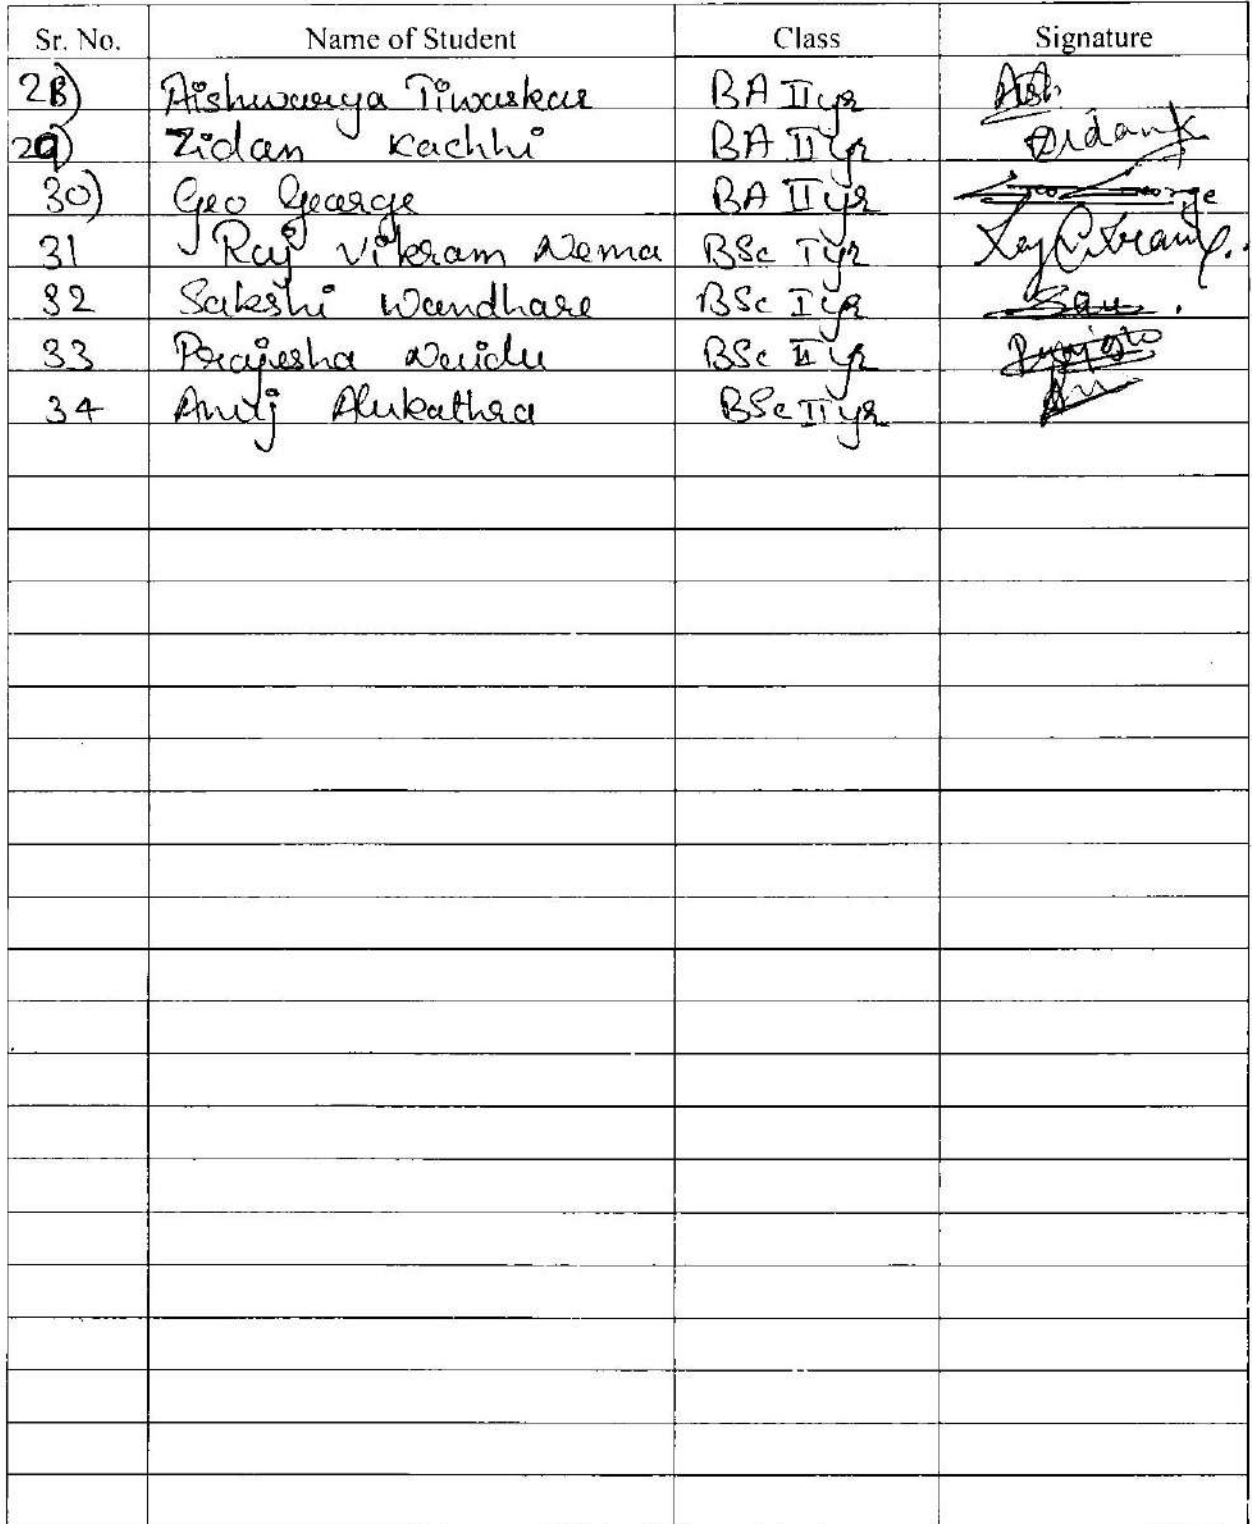 Sr. No. Name of Student Class Signature
28) Aishwarya Tiwaskar BA II yr Ash
29) Zidan Kachhi BA II yr Zidan K
30) Geo George BA II yr Geo George
31 Raj Vikram Nema BSc I yr
32 Sakshi Wandhare BSc I yr
33 Prajesha Naidu BSc II yr
34 Anuj Alukathra BSc II yr